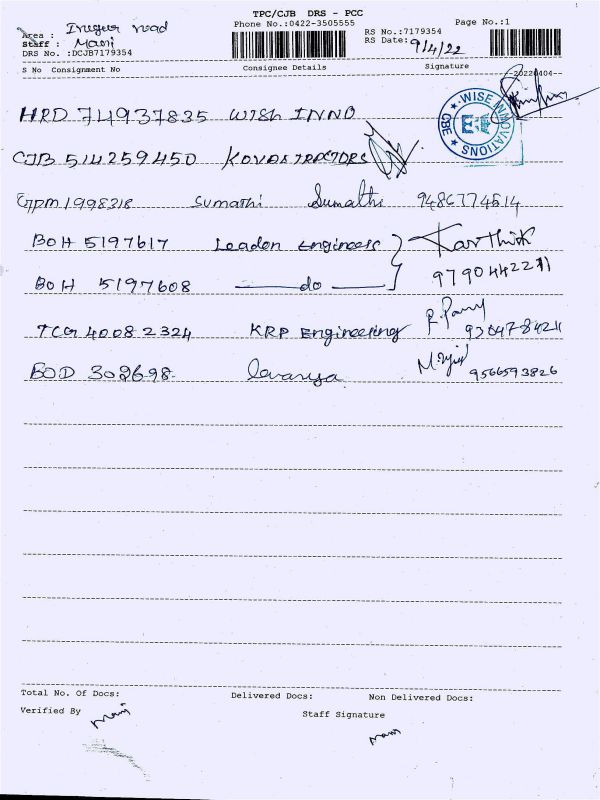 TPC/CJB DRS - PCC
Phone No.:0422-3505555
Page No.:1
Area : Irugur road
Staff : Mani
DRS No. :DCJB7179354
RS No.:7179354
RS Date: 9/4/22
S No Consignment No Consignee Details Signature
20220404
HRD 74937835 WISH INNO
WISE INNOVATIONS
CBE
CJB 514259450
1998318 Sumathi Sumathi 9486774514
BOH 5197617 Leadon Engineers Karthik
BOH 5197608 do 9790442211
TCG 40082324 KRP Engineering
BOD 302698 lavanya 9566593826
Total No. Of Docs: Delivered Docs: Non Delivered Docs:
Verified By Mani
Staff Signature
Mani